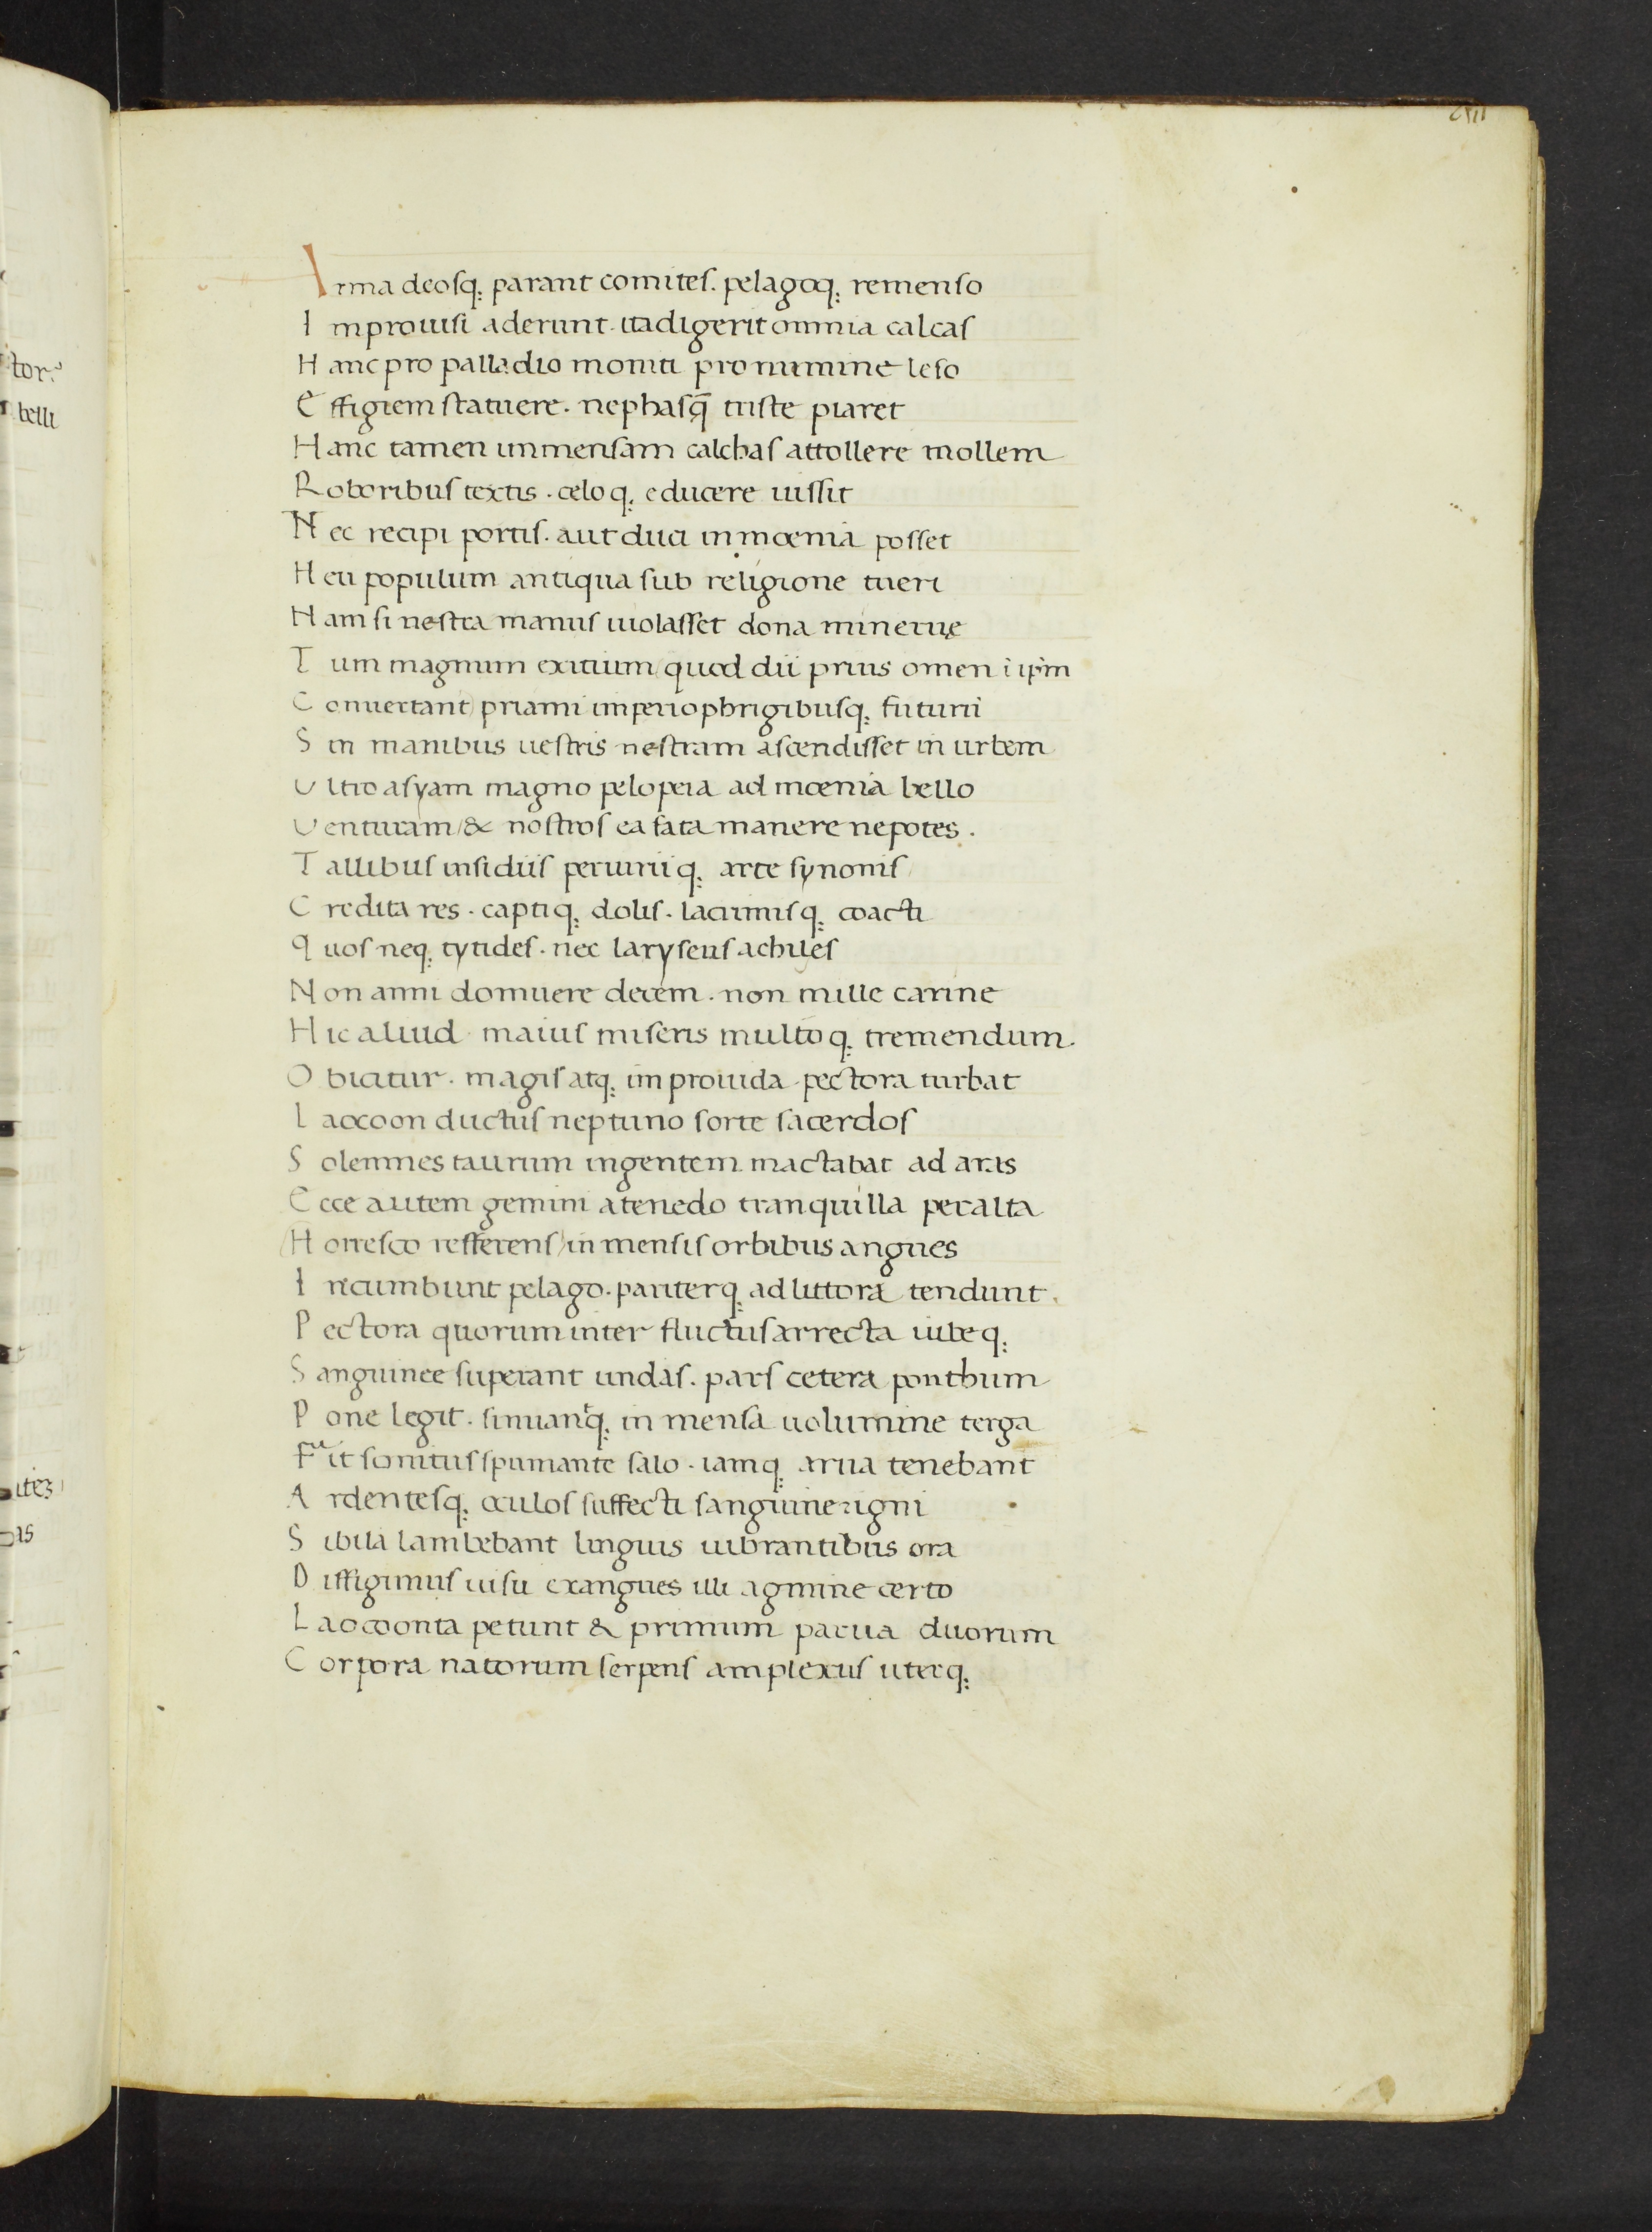 Arma deosq; parant comites. pelagoq; remenso
Improuisi aderunt. ita digerit omnia calcas
Hanc pro palladio moniti pro numine leso
Effigiem statuere. nephasq̄ triste piaret
Hanc tamen immensam calchas attollere mollem
Roboribus textis. celoq; educere iussit
Nec recipi portis. aut duci in moenia posset
Heu populum antiqua sub religione tueri
Nam si nestra manus uiolasset dona mineruę
Tum magnum exitium (quod dii prius omen i ip̄m
Conuertant) priami imperio phrigibusq; futurū
Sin manibus uestris nestram ascendisset in urbem
Ultro asyam magno pelopeia ad moenia bello
Uenturam / & nostros ea fata manere nepotes.
Tallibus insidiis periuriiq; arte synonis
Credita res. captiq; dolis. lacrimisq; coacti
quos neq; tytides. nec laryseus achilles
Non anni domuere decem. non mille carine
Hic aliud maius miseris multoq; tremendum.
Obicitur. magis atq; improuida pectora turbat
Laocoon ductus neptuno sorte sacerdos
Solemnes taurum ingentem mactabat ad aras
Ecce autem gemini a tenedo tranquilla per alta
(Horresco refferens) in mensis orbibus angues
Incumbunt pelago. pariterq; ad littora tendunt.
Pectora quorum inter fluctus arrecta iubeq;
Sanguinee superant undas. pars cetera ponthum
Pone legit. sinuantq; in mensa uolumine terga
Fuit sonitus spumante salo. iamq; arua tenebant
Ardentesq; oculos suffecti sanguine & igni
Sibila lambebant linguis uibrantibus ora
Diffigimus uisu exangues illi agmine certo
Laocoonta petunt & primum parua duorum
Corpora natorum serpens amplexus uterq;
belli